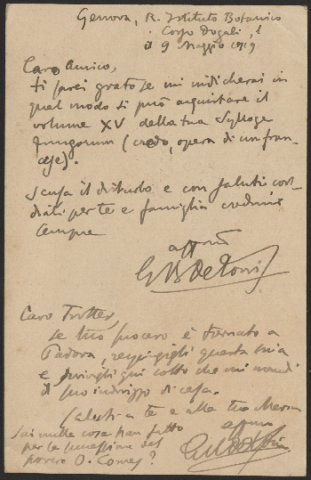 Genova, R. Istituto Botanico
Corso Dogali, 1
il 9 Maggio 1919
Caro Amico,
ti sarei grato se mi indicherai in
qual modo si può acquistare il
volume XV della tua Sylloge
Fungorum (credo, opera di un fran-
cese).
Scusa il disturbo e con saluti cor-
diali per te e famiglia credimi
sempre
aff.mo
G B De Toni
Caro Trotter,
se tuo suocero è tornato a
Padova, leggigli questa mia
e digli qui sotto che mi mandi
il suo indirizzo di casa.
Saluti a te e alla tua
Sai nulla cosa han fatto
per la successione del
povero O. Comes?
aff.mo
GB De Toni